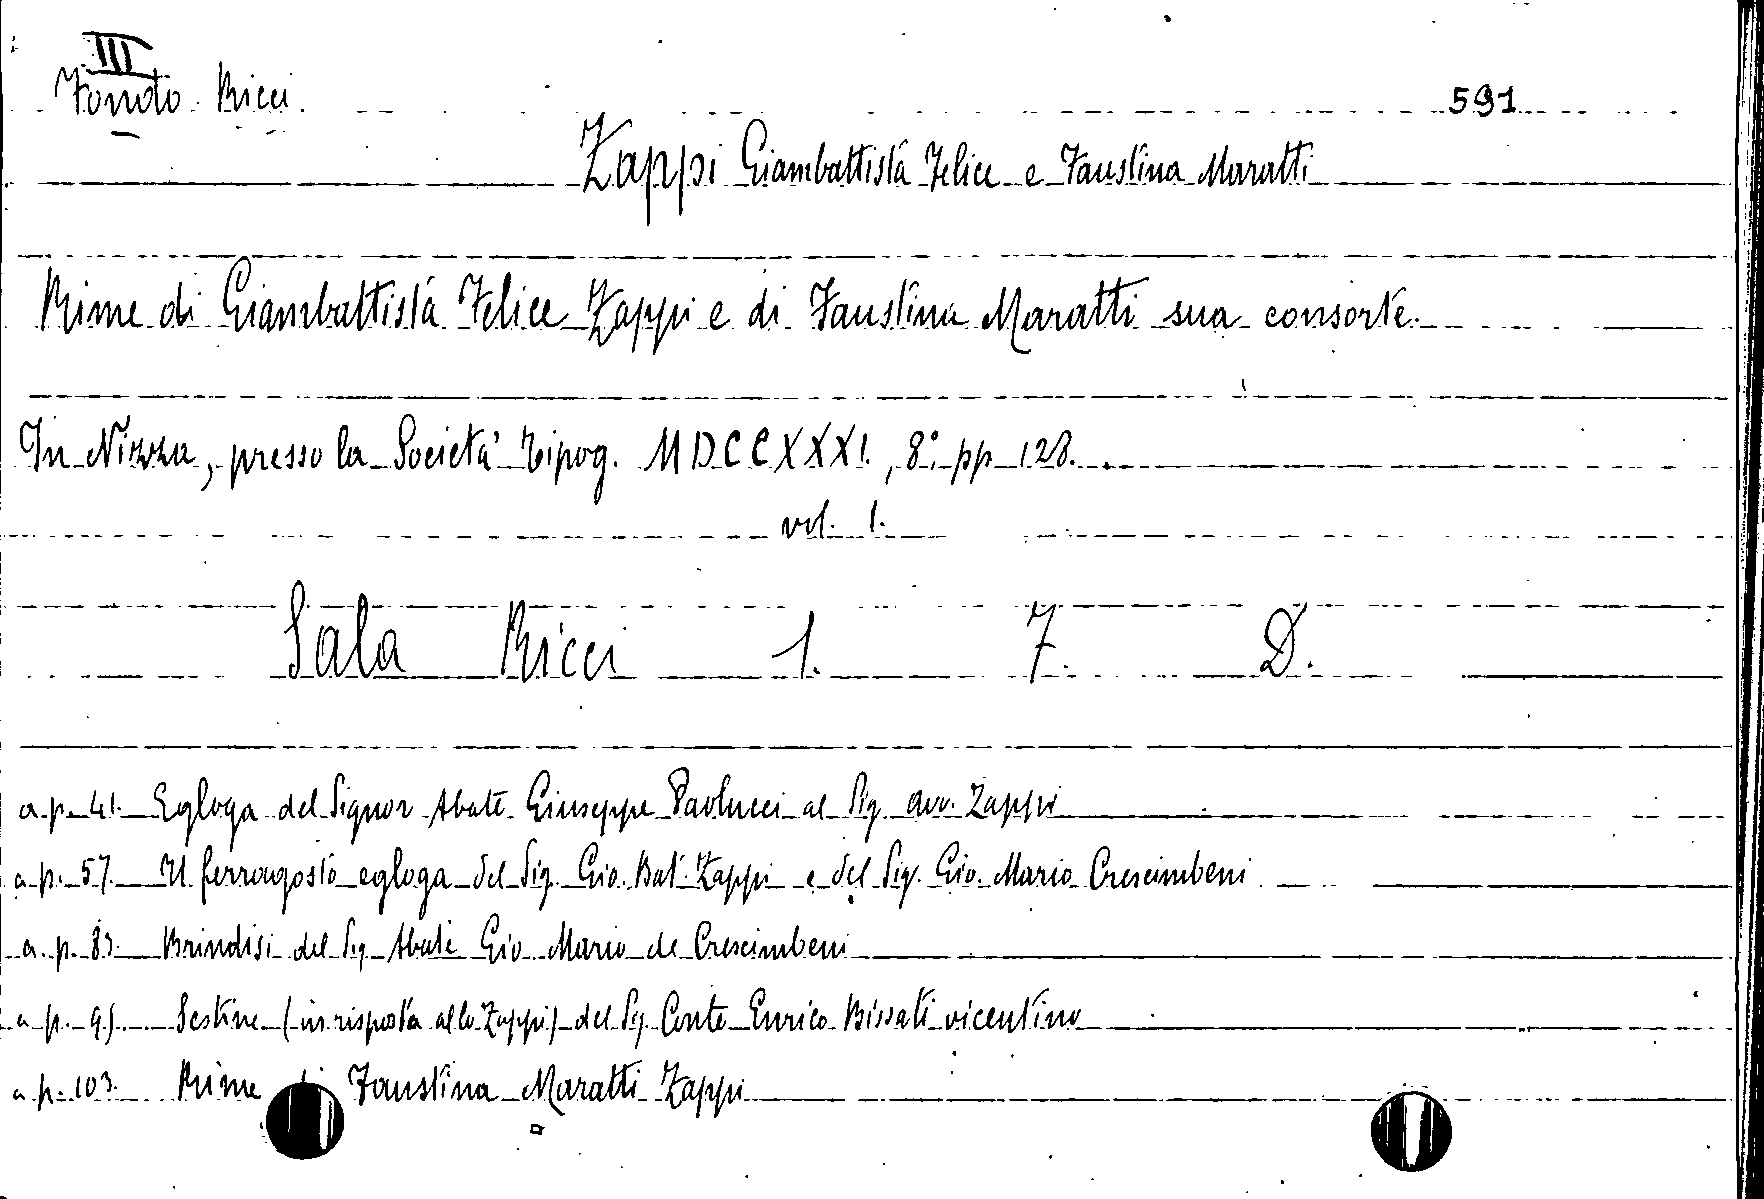 III
Fondo Ricci. 591
Zappi Giambattista Felice e Faustina Maratti
Rime di Giambattista Felice Zappi e di Faustina Maratti sua consorte.
In Nizza, presso la Società Tipog. MDCCXXXI., 8° pp 128.
vol. 1.
Sala Ricci 1. 7. D.
a p. 41. Egloga del Signor Abate Giuseppe Paolucci al Sig. avv. Zappi
a p. 57. Il ferragosto egloga del Sig. Gio. Bat. Zappi e del Sig. Gio. Mario Crescimbeni
a. p. 83. Brindisi del Sig Abate Gio Mario de Crescimbeni
a p. Sestine (in risposta allo Zappi) del Sig. Conte Enrico Bissati vicentino
a p. 103. Rime Faustina Maratti Zappi